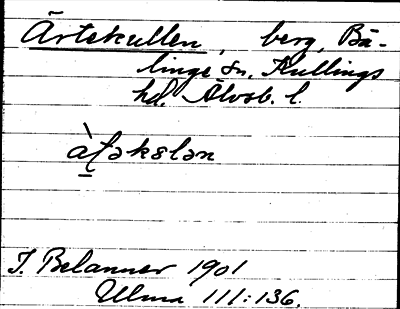 Ärtekullen, berg, Bä-
linge sn. Kullings
hd. Älvsb. l.
àʈəkələn
I. Belanner 1901
Ulma 111:136.